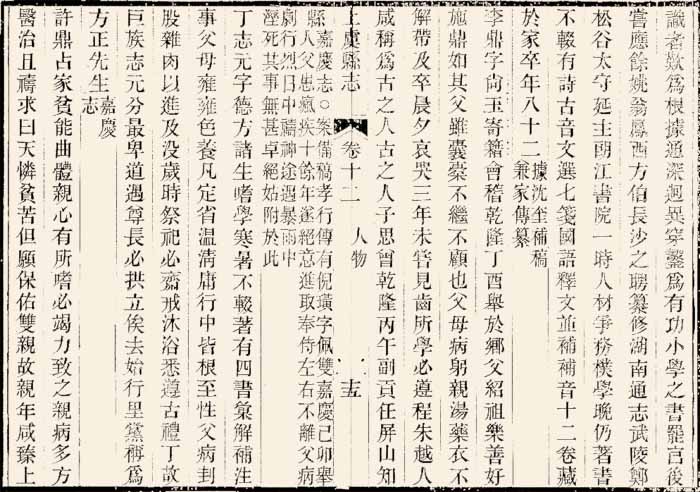 識者歎爲根據通深迥異穿鑿爲有功小學之書罷官後
嘗應餘姚翁鳳西方伯長沙之聘纂修湖南通志武陵鄭
松谷太守延主朗江書院一時人材爭務樸學晚仍著書
不輟有詩古音文選七箋國語釋文並補補音十二卷藏
於家卒年八十二據沈奎補稿
兼家傳纂
李鼎字尙玉寄籍會稽乾隆丁酉舉於鄉父紹祖樂善好
施鼎如其父雖囊橐不繼不顧也父母病躬親湯藥衣不
解帶及卒晨夕哀哭三年未嘗見齒所學必遵程朱越人
咸稱爲古之人古之人子思曾乾隆丙午副貢任屏山知
上虞縣志 卷十二 人物 十五
縣嘉慶志○案備稿孝行傳有倪璜字佩雙嘉慶己卯舉
人父患瘋疾十餘年遂絕意進取奉侍左右不離父病
劇行烈日中禱神途遇暴雨中
溼死其事無甚卓絕姑附於此
丁志元字德方諸生嗜學寒暑不輟著有四書彙解補注
事父母雍雍色養凡定省温凊庸行中皆根至性父病刲
股雜肉以進及没歲時祭祀必齋戒沐浴悉遵古禮丁故
巨族志元分最卑道遇尊長必拱立俟去始行里黨稱爲
方正先生嘉慶
志
許鼎占家貧能曲體親心有所嗜必竭力致之親病多方
醫治且禱求曰天憐貧苦但願保佑雙親故親年咸臻上